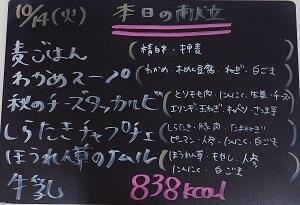 10/14(火) 本日の献立
麦ごはん (精白米・押麦
わかめスープ (わかめ・木めん豆腐・ねぎ・白ごま
秋のチーズタッカルビ (とりもも肉・にんにく・生姜・チーズ
エリンギ・玉ねぎ・キャベツ・さつま芋
しらたきチャプチェ (しらたき・豚肉・たまねぎ
ピーマン・人参・にんにく・白ごま
ほうれん草のナムル (ほうれん草・もやし・人参
にんにく・白ごま
牛乳 838kcal